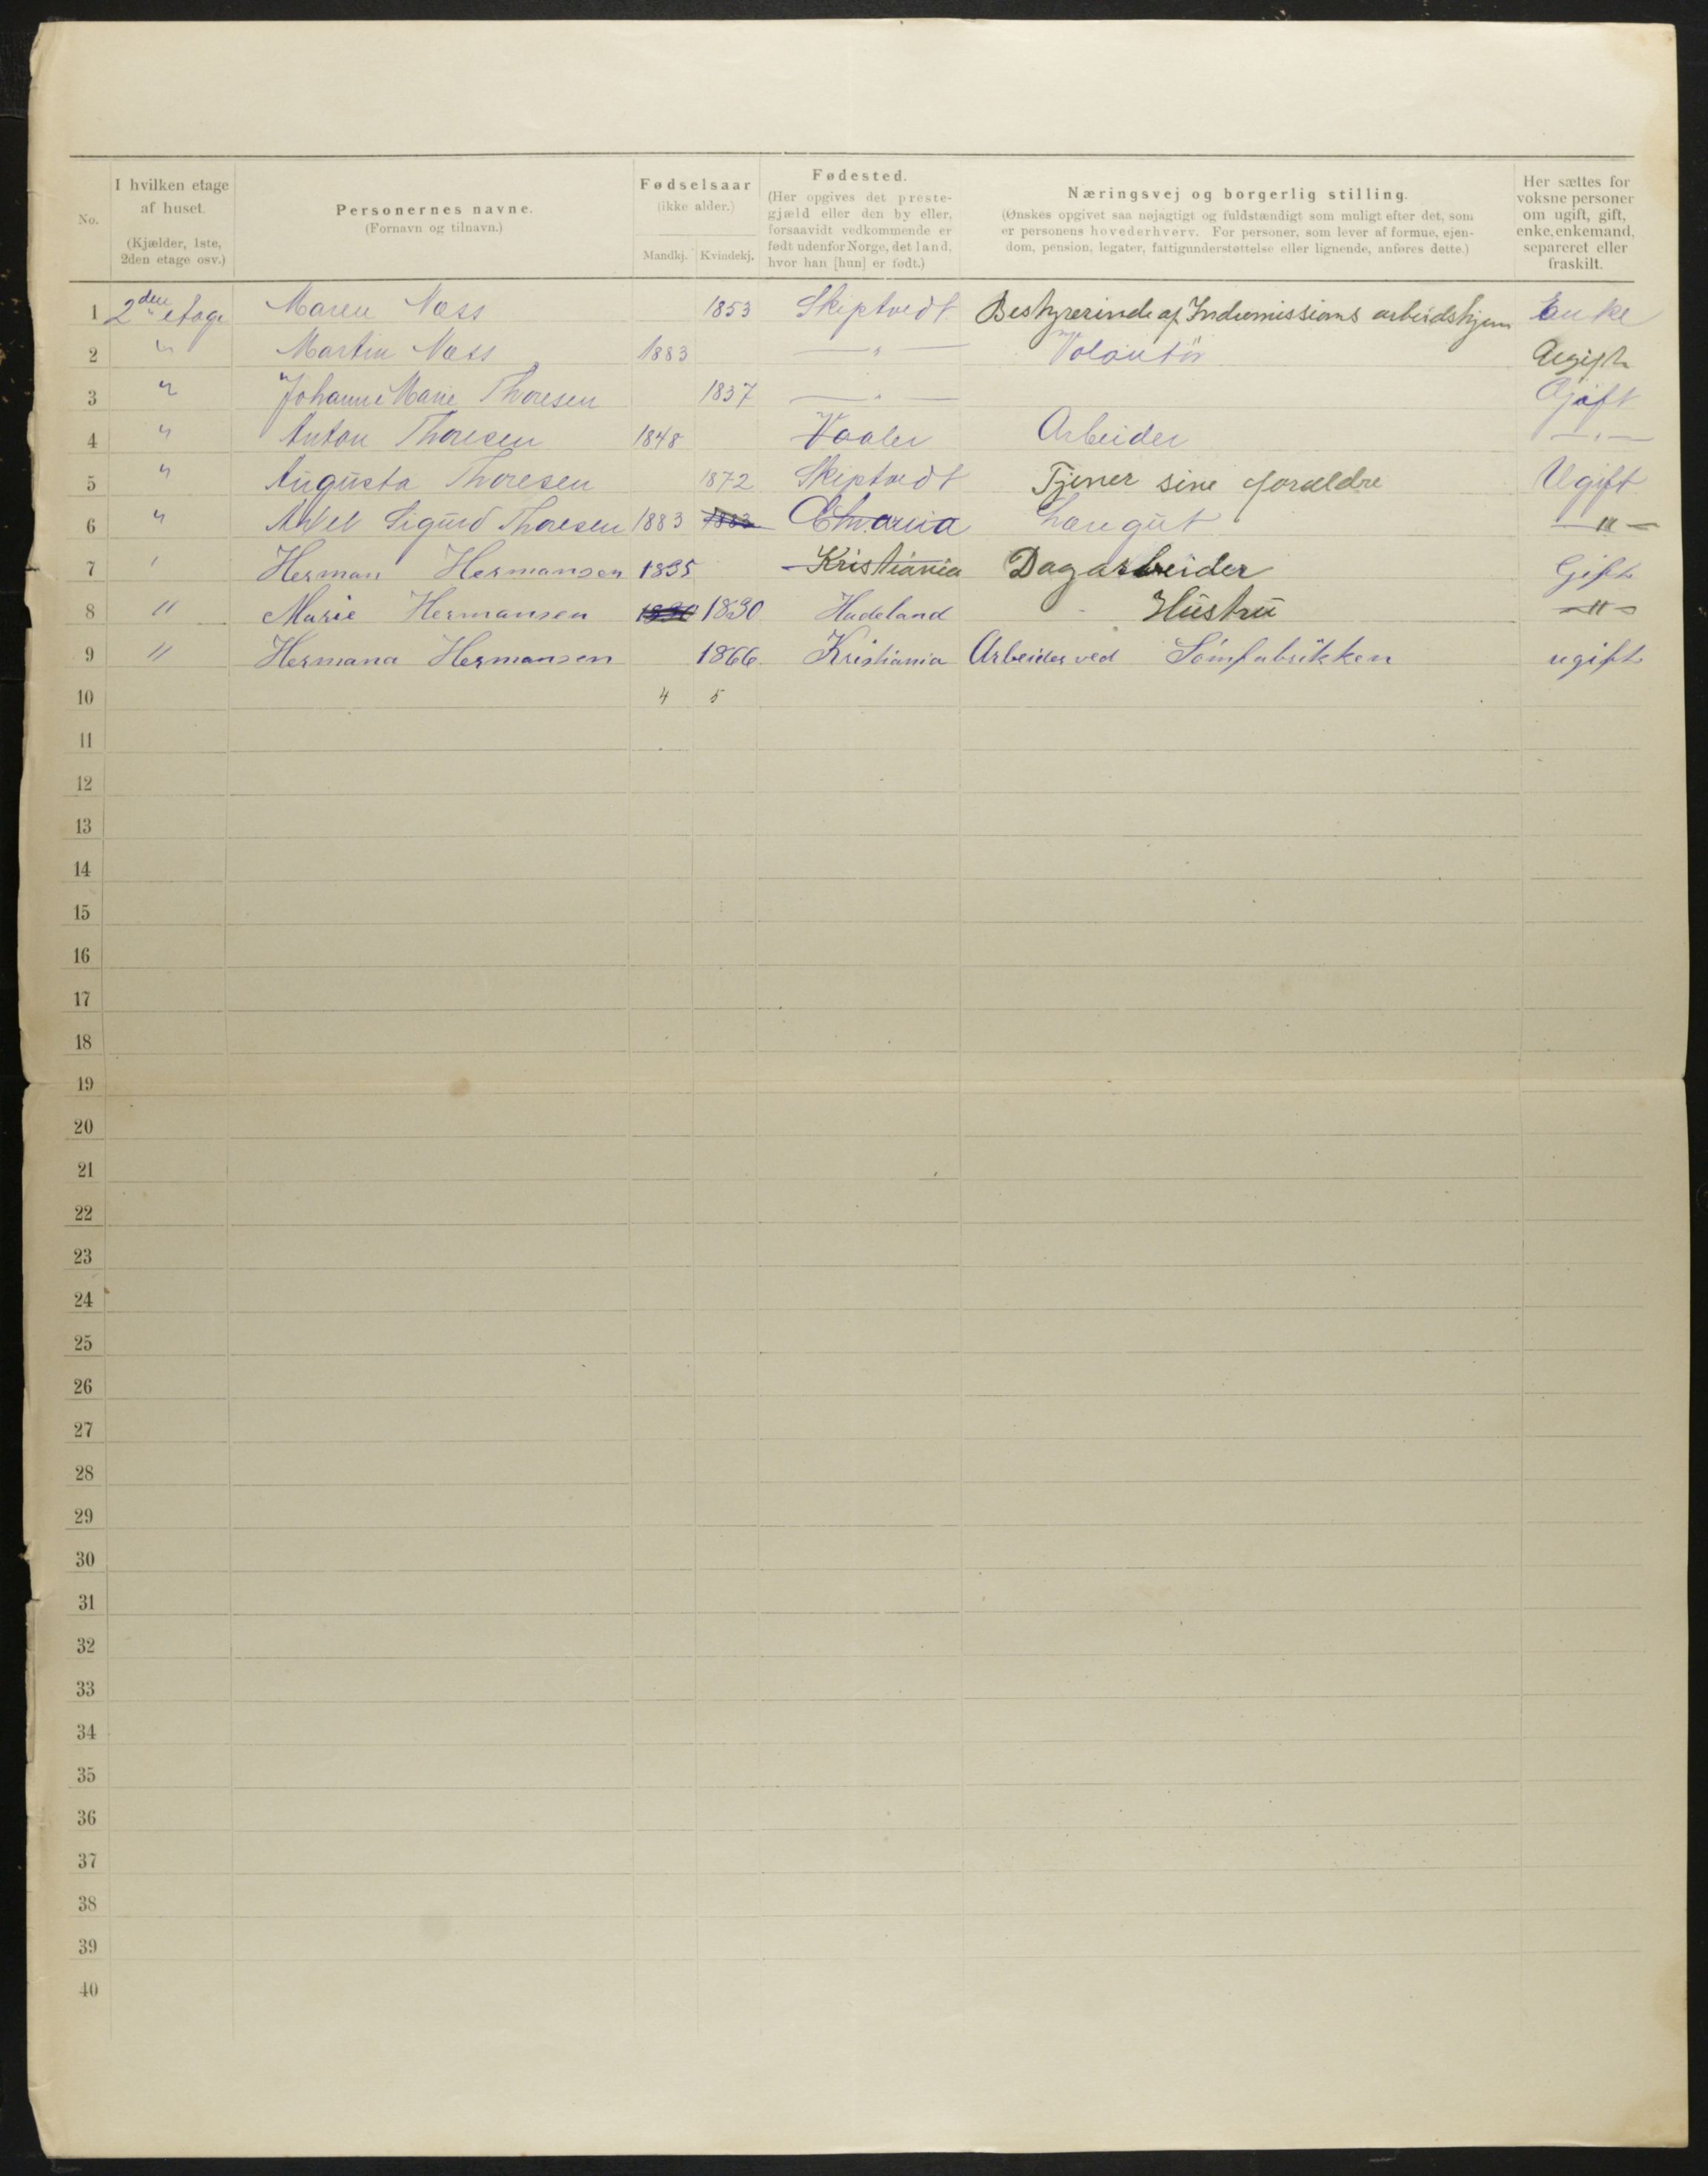 No. | I hvilken etage af huset. (Kjælder, 1ste, 2den etage osv.) | Personernes navne. (Fornavn og tilnavn.) | Fødselsaar (ikke alder.) Mandkj. Kvindekj. | Fødested. (Her opgives det prestegjæld eller den by eller, forsaavidt vedkommende er født udenfor Norge, det land, hvor han [hun] er født.) | Næringsvej og borgerlig stilling. (Ønskes opgivet saa nøjagtigt og fuldstændigt som muligt efter det, som er personens hovederhverv. For personer, som lever af formue, ejendom, pension, legater, fattigunderstøttelse eller lignende, anføres dette.) | Her sættes for voksne personer om ugift, gift, enke, enkemand, separeret eller fraskilt.
1 2den etage Maren Næss 1853 Skiptvedt Bestyrerinde af Indremissions arbeidshjem Enke
2 " Martin Næss 1883 — " — Volontør Ugift
3 " Johanne Marie Thoresen 1837 — " — Gift
4 " Anton Thoresen 1848 Vaaler Arbeider — " —
5 " Augusta Thoresen 1872 Skiptvedt Tjener sine forældre Ugift
6 " Axel Sigurd Thoresen 1883 1883 Læregut — " —
7 " Herman Hermansen 1835 Kristiania Dagarbeider Gift
8 " Marie Hermansen 1830 1830 Hadeland Hustru — " —
9 " Hermana Hermansen 1866 Kristiania Arbeider ved Sømfabrikken ugift
10 4 5
11
12
13
14
15
16
17
18
19
20
21
22
23
24
25
26
27
28
29
30
31
32
33
34
35
36
37
38
39
40